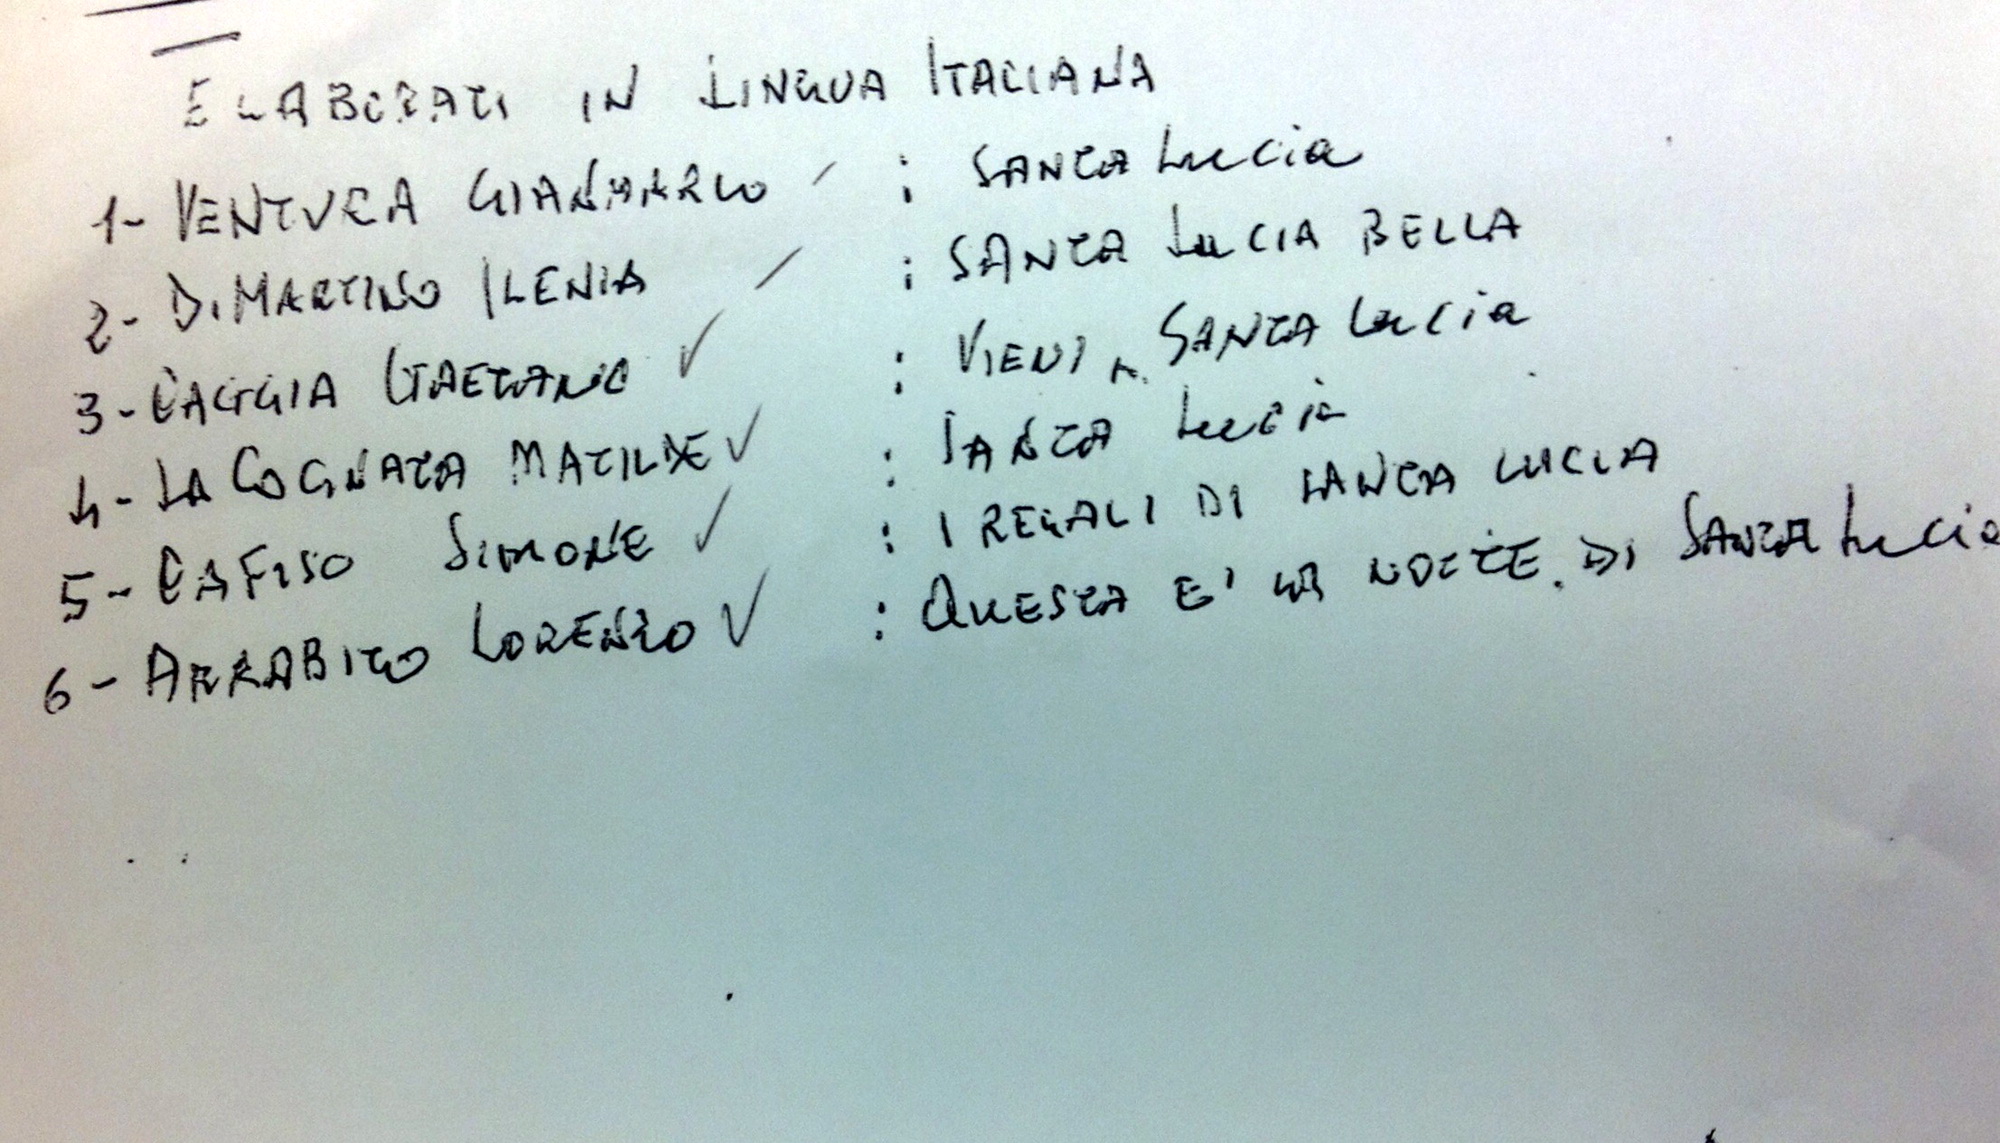 ELABORATI IN LINGUA ITALIANA
1- VENTURA GIANMARCO : SANTA Lucia
2- DI MARTINO ILENIA : SANTA LUCIA BELLA
3- CAGGIA GAETANO ✓ : VIENI SANTA Lucia
4- LA COGNATA MATILDE ✓ : SANTA Lucia
5- CAFISO SIMONE ✓ : I REGALI DI SANTA LUCIA
6- ARRABITO LORENZO ✓ : QUESTA E' LA NOTTE DI SANTA Lucia